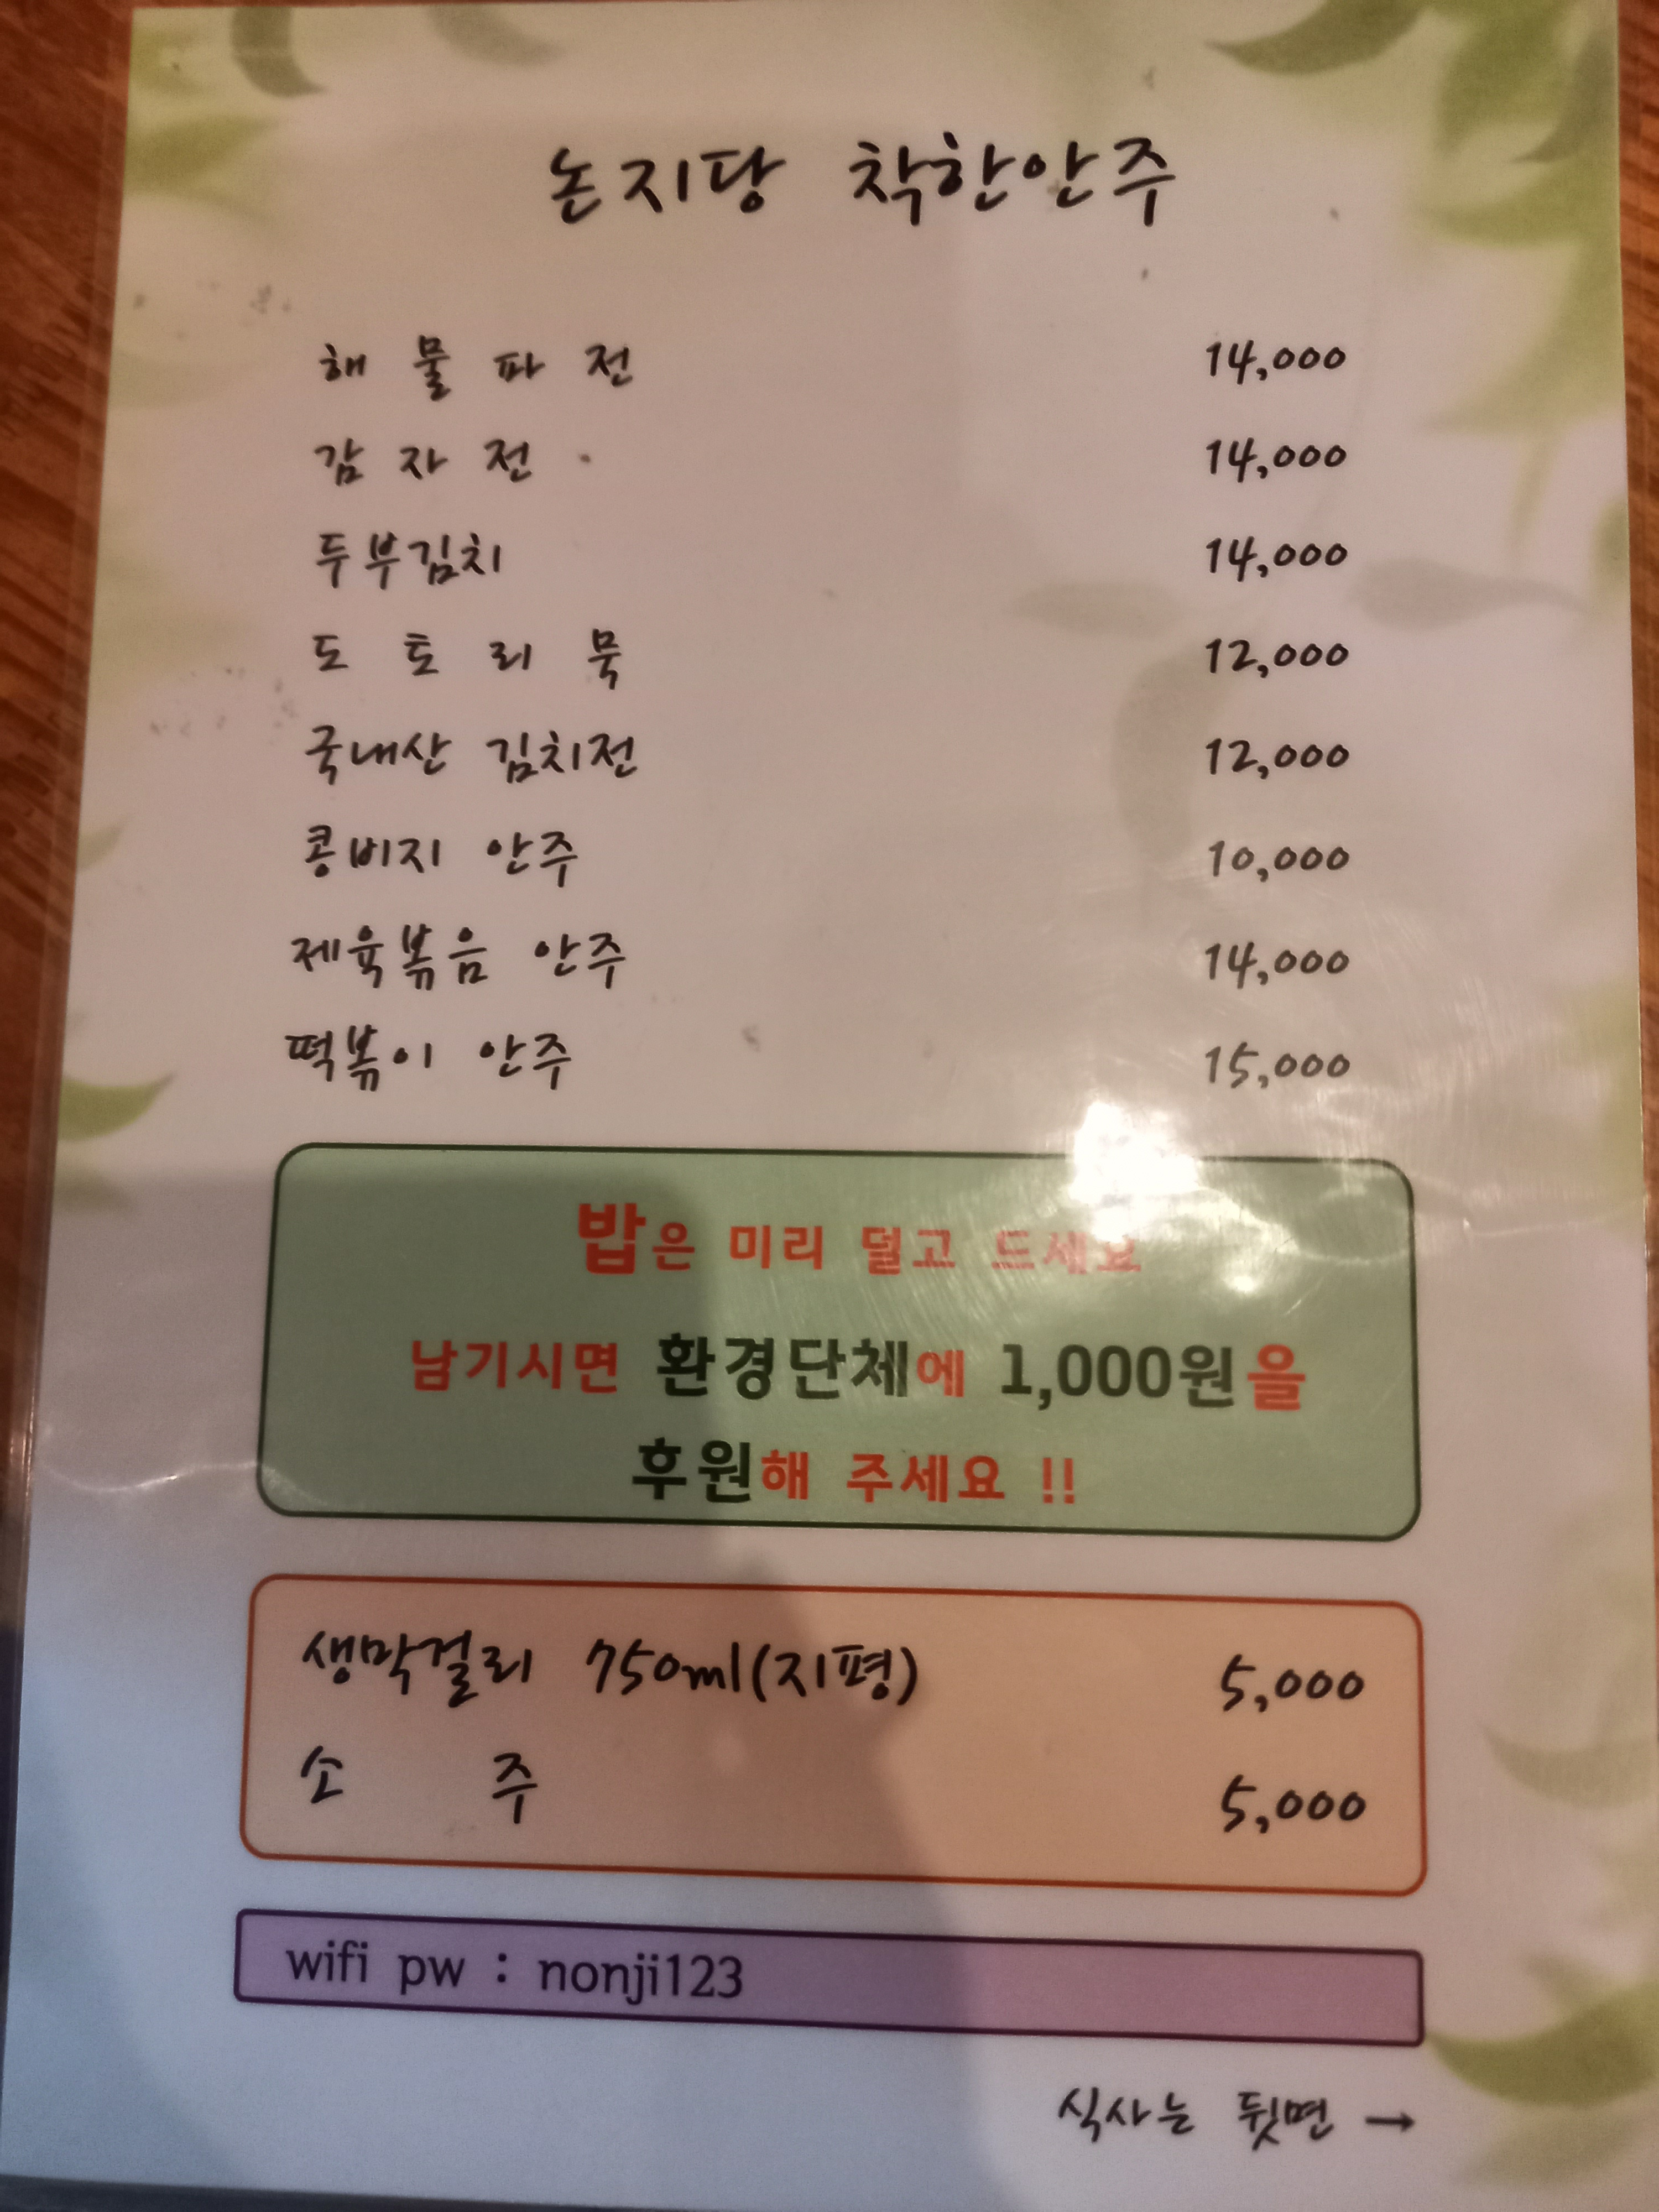 논지당 착한안주
해물파전 14,000
감자전 14,000
두부김치 14,000
도토리묵 12,000
국내산 김치전 12,000
콩비지 안주 10,000
제육볶음 안주 14,000
떡볶이 안주 15,000
밥은 미리 덜고 드세요
남기시면 환경단체에 1,000원을
후원해 주세요 !!
생막걸리 750ml(지평) 5,000
소주 5,000
wifi pw : nonji123
식사는 뒷면 →